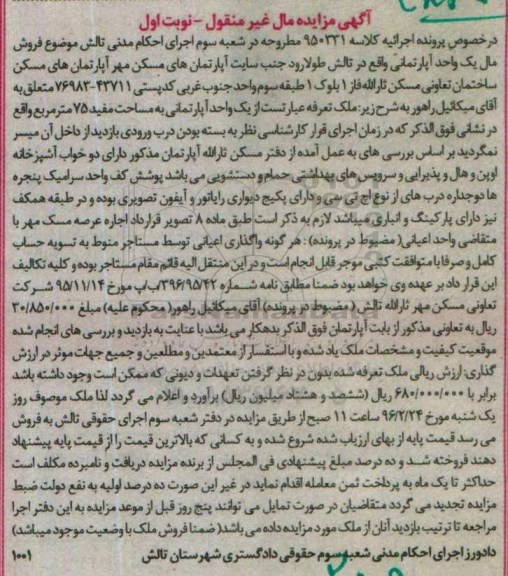 آگهی مزایده مال غیر منقول - نوبت اول
درخصوص پرونده اجرائیه کلاسه ۹۵۰۳۳۱ مطروحه در شعبه سوم اجرای احکام مدنی تالش موضوع فروش
مال یک واحد آپارتمانی واقع در تالش طولارود جنب سایت آپارتمان های مسکن مهر آپارتمان های مسکن
ساختمان تعاونی مسکن ثارالله فاز ۱ بلوک ۱ طبقه سوم واحد جنوب غربی کدپستی ۴۳۷۱۱-۷۶۹۸۳ متعلق به
آقای میکائیل راهور به شرح زیر: ملک تعرفه عبارتست از یک واحد آپارتمانی به مساحت مفید ۷۵ مترمربع واقع
در نشانی فوق الذکر که در زمان اجرای قرار کارشناسی نظر به بسته بودن درب ورودی بازدید از داخل آن میسر
نمگردید بر اساس بررسی های به عمل آمده از دفتر مسکن ثارالله آپارتمان مذکور دارای دو خواب آشپزخانه
اوپن و هال و پذیرایی و سرویس های بهداشتی حمام و دستشویی می باشد پوشش کف واحد سرامیک پنجره
ها دوجداره درب های از نوع اچ تی سی و دارای پکیج دیواری رادیاتور و آیفون تصویری بوده و در طبقه همکف
نیز دارای پارکینگ و انباری میباشد لازم به ذکر است طبق ماده ۸ تصویر قرارداد اجاره عرصه مسک مهر با
متقاضی واحد اعیانی( مضبوط در پرونده) : هر گونه واگذاری اعیانی توسط مستاجر منوط به تسویه حساب
کامل و صرفا با موافقت کتبی موجر قابل انجام است و در این منتقل الیه قائم مقام مستاجر بوده و کلیه تکالیف
این قرار داد بر عهده وی خواهد بود ضمنا مطابق نامه شماره ۳۹۶/۹۵/۴۲/ب/پ مورخ ۹۵/۱۱/۱۴ شرکت
تعاونی مسکن مهر ثارالله تالش ( مضبوط در پرونده) آقای میکائیل راهور( محکوم علیه) مبلغ ۳۰/۸۵۰/۰۰۰
ریال به تعاونی مذکور از بابت آپارتمان فوق الذکر بدهکار می باشد با عنایت به بازدید و بررسی های انجام شده
موقعیت کیفیت و مشخصات ملک یاد شده و با استفسار از معتمدین و مطلعین و جمیع جهات موثر در ارزش
گذاری: ارزش ریالی ملک تعرفه شده بدون در نظر گرفتن تعهدات و دیونی که ممکن است وجود داشته باشد
برابر با ۶۸۰/۰۰۰/۰۰۰ ریال (ششصد و هشتاد میلیون ریال) برآورد و اعلام می گردد لذا ملک موصوف روز
یک شنبه مورخ ۹۶/۲/۲۴ ساعت ۱۱ صبح از طریق مزایده در دفتر شعبه سوم اجرای حقوقی تالش به فروش
می رسد قیمت پایه از بهای ارزیاب شده شروع شده و به کسانی که بالاترین قیمت را از قیمت پایه پیشنهاد
دهند فروخته شد و ده درصد مبلغ پیشنهادی فی المجلس از برنده مزایده دریافت و نامبرده مکلف است
حداکثر تا یک ماه به پرداخت ثمن معامله اقدام نماید در غیر این صورت ده درصد اولیه به نفع دولت ضبط
مزایده تجدید می گردد متقاضیان در صورت تمایل می توانند پنج روز قبل از موعد مزایده به این دفتر اجرا
مراجعه تا ترتیب بازدید آنان از ملک مورد مزایده داده می باشد( ضمنا فروش ملک با وضعیت موجود میباشد)
دادورز اجرای احکام مدنی شعبه سوم حقوقی دادگستری شهرستان تالش ۱۰۰۱